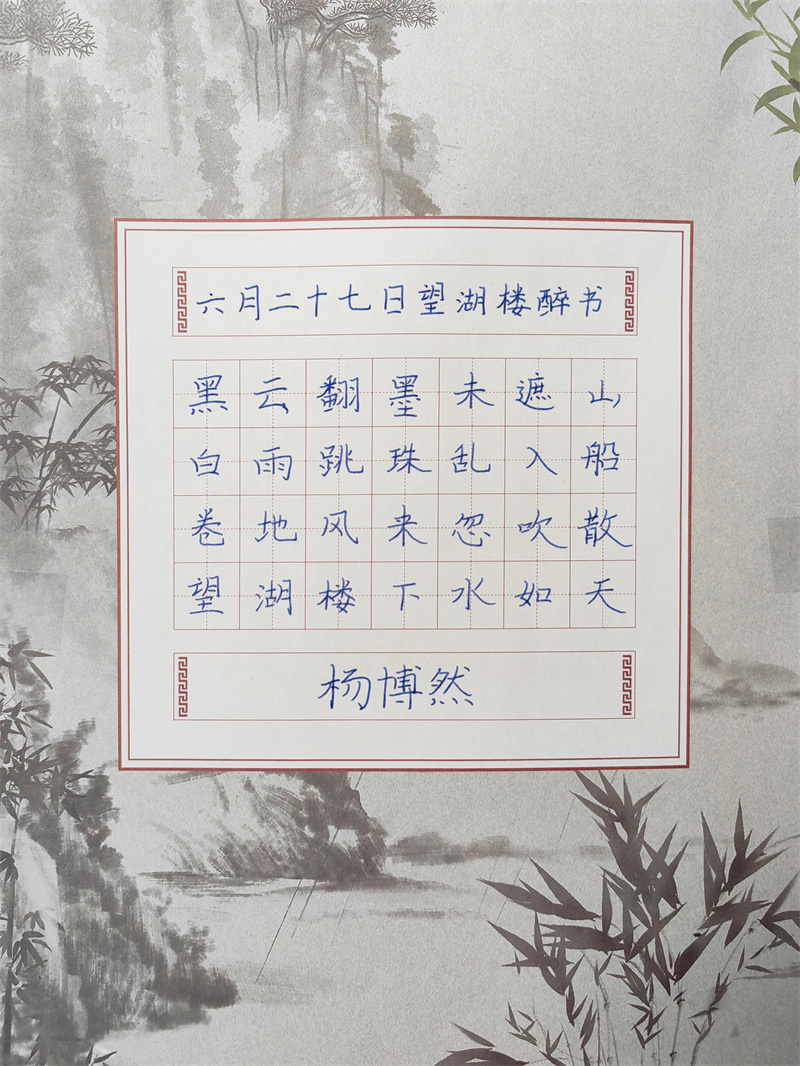 六月二十七日望湖楼醉书
黑云翻墨未遮山
白雨跳珠乱入船
卷地风来忽吹散
望湖楼下水如天
杨博然